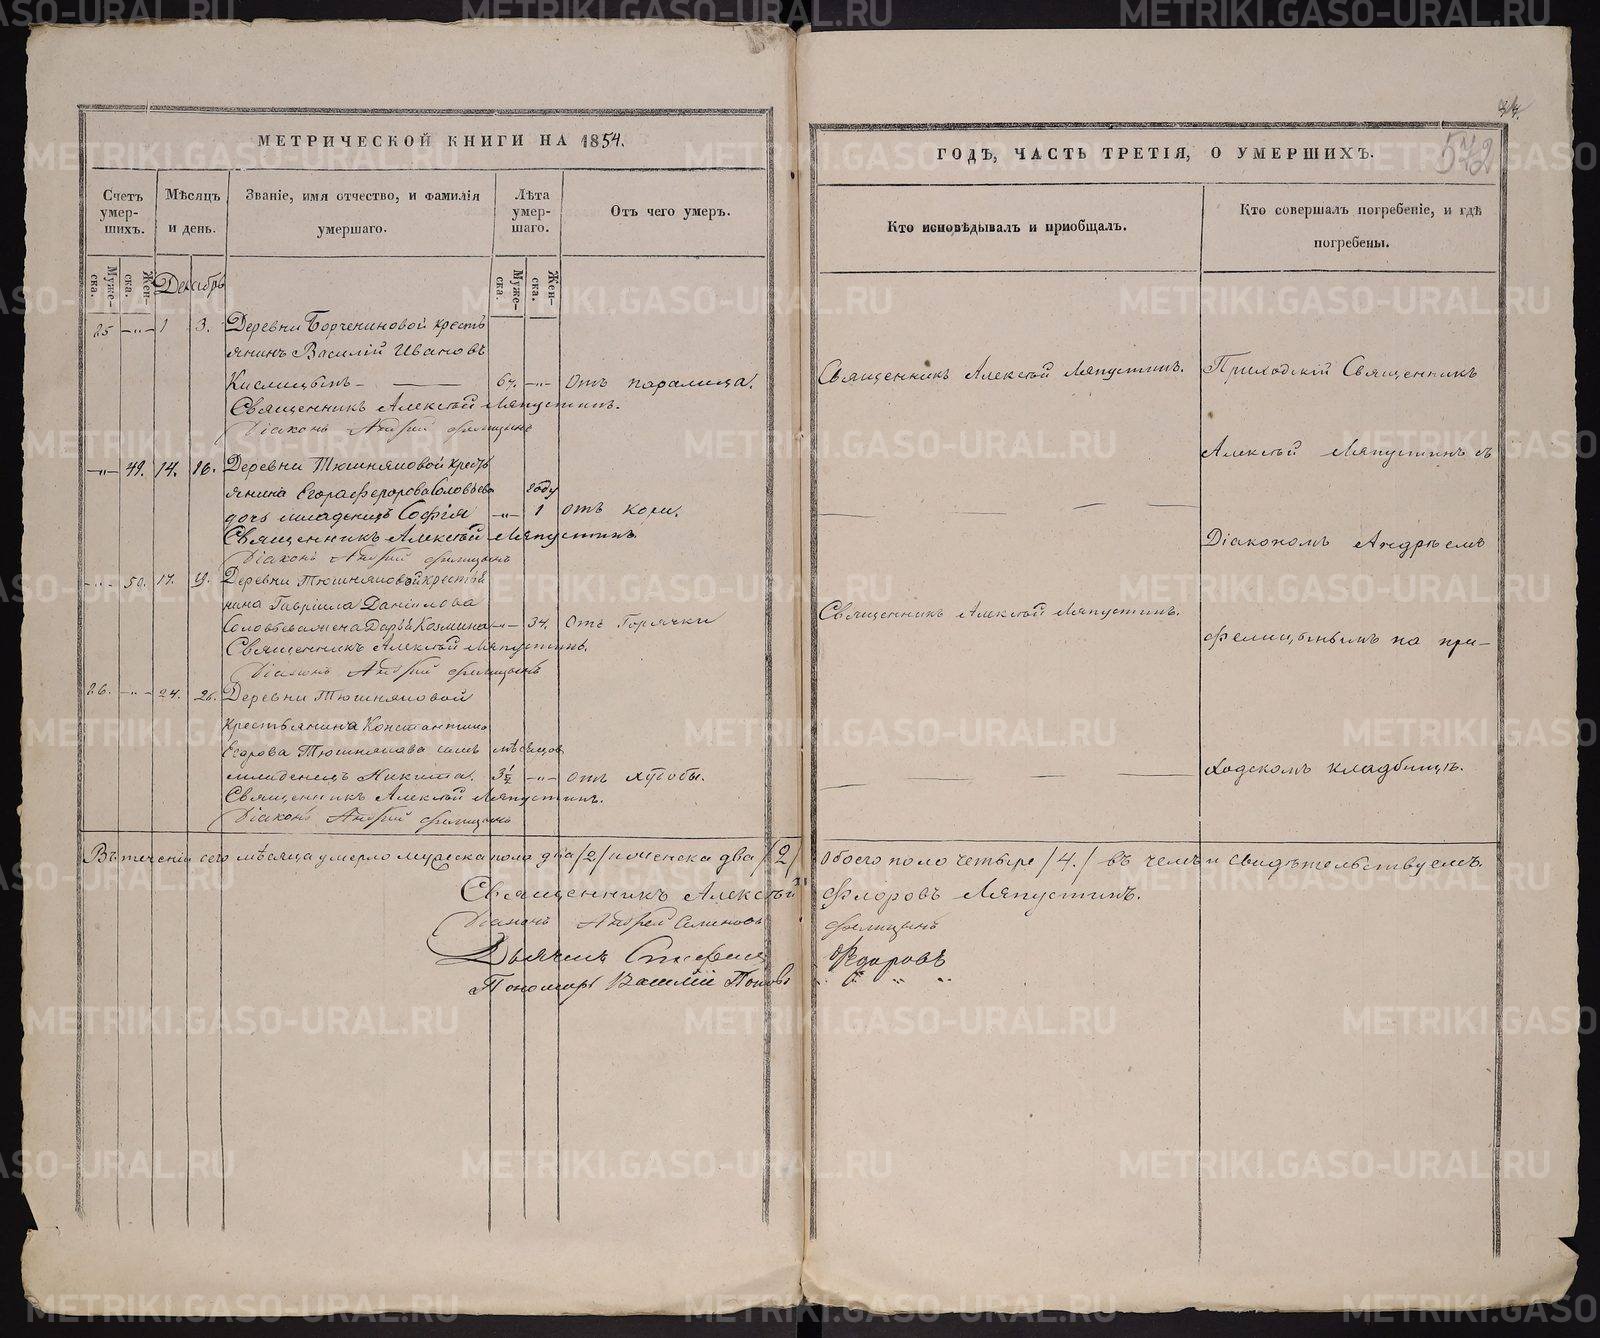 МЕТРИЧЕСКОЙ КНИГИ НА 1854.
Счетъ умер-шихъ.
Муже-ска.
Жен-ска.
Мѣсяцъ и день.
Декабрь
Званіе, имя отчество, и фамилія умершаго.
Лѣта умер-шаго.
Муже-ска.
Жен-ска.
Отъ чего умеръ.
25 —„— 1 3. Деревни Борчениновой кресть
янинъ Василій Ивановъ
Кислицынъ — 67. —„— отъ паралича.
Священникъ Алексѣй Ляпустинъ.
Діаконъ Андрей Фелицынъ
—„— 49. 14. 16. Деревни Тюшняковой кресть
янина Егора Федорова Соловьева году
дочь младенецъ Софія —„— 1 отъ кори.
Священникъ Алексѣй Ляпустинъ
Діаконъ Андрей Фелицынъ
—„— 50. 17. 19. Деревни Тюшняковой крестья
нина Гавріила Даніилова
Соловьева жена Дарья Козмина —„— 34. отъ Горячки
Священникъ Алексѣй Ляпустинъ.
Діаконъ Андрей Фелицынъ
26. —„— 24. 26. Деревни Тюшняковой
крестьянина Константина
Егорова Тюшнякова сынъ мѣсяцов
младенецъ Никита. 3½ —„— отъ худобы.
Священникъ Алексѣй Ляпустинъ.
Діаконъ Андрей Фелицынъ
Въ теченіи сего мѣсяца умерло мужеска пола два /2/ и женска два /2/
Священникъ Алексѣй
Діаконъ Андрей Семеновъ
Дьячекъ Стефанъ
Пономарь Василій Поповъ
34.
572
ГОДѢ, ЧАСТЬ ТРЕТІЯ, О УМЕРШИХЪ.
Кто исповѣдывалъ и приобщалъ.
Кто совершалъ погребеніе, и гдѣ погребены.
Священникъ Алексѣй Ляпустинъ. Приходскій Священникъ
Алексѣй Ляпустинъ съ
Діакономъ Андреемъ
Священникъ Алексѣй Ляпустинъ.
Фелицынымъ на при-
ходскомъ кладбищѣ.
Обоего поло четыре /4./ въ чемъ и свидѣтельствуемъ.
Флоровъ Ляпустинъ.
Фелицынъ
Федоровъ
METRIKI.GASO-URAL.RU